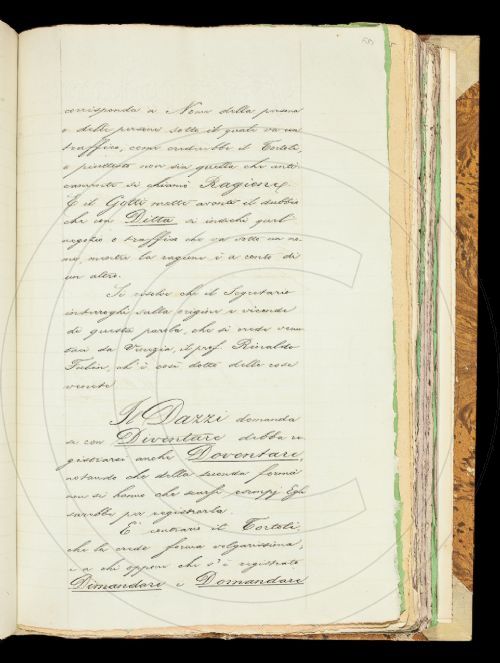 corrisponda a Nome della persona
o delle persone sotto il quale va un
traffico, come crederebbe il Tortoli,
o piuttosto non sia quella che anti
camente si chiamò Ragione.
E il Gotti mette avanti il dubbio
che con Ditta si indichi quel
negozio o traffico che va sotto un no
me, mentre la ragione è a conto di
un altro.
Si risolve che il Segretario
interroghi sulla origine e vicende
di questa parola, che si crede venu
taci da Venezia, il prof. Rinaldo
Fulin, ch'è così dotto delle cose
venete.
Il Dazzi domanda
se con Diventare debba re
gistrarsi anche Doventare,
notando che della seconda forma
non si hanno che scarsi esempj. Egli
sarebbe per registrarla.
È contrario il Tortoli,
che la crede forma volgarissima;
e a chi oppone che s'è registrato
Dimandare e Domandare